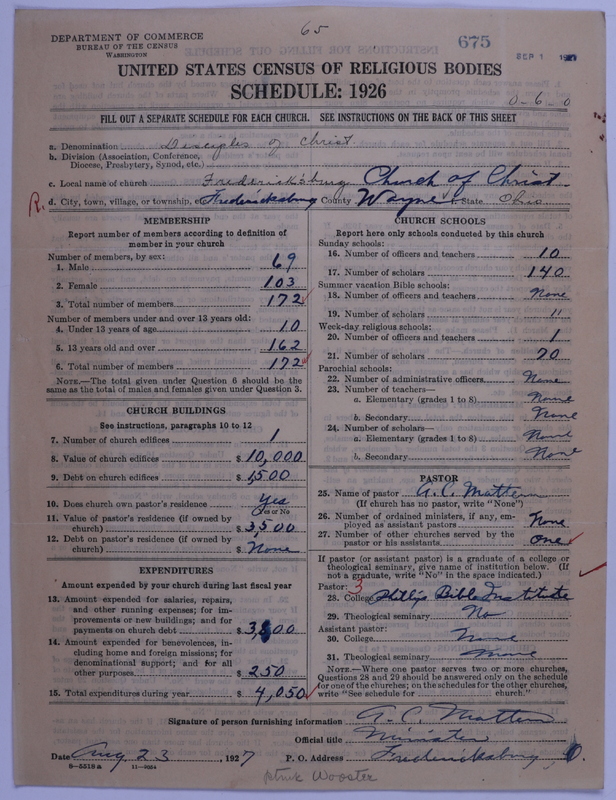 65
DEPARTMENT OF COMMERCE
BUREAU OF THE CENSUS
WASHINGTON
675
SEP 1 1927
UNITED STATES CENSUS OF RELIGIOUS BODIES
SCHEDULE: 1926
0-6-0
FILL OUT A SEPARATE SCHEDULE FOR EACH CHURCH. SEE INSTRUCTIONS ON THE BACK OF THIS SHEET
a. Denomination Disciples of Christ
b. Division (Association, Conference, Diocese, Presbytery, Synod, etc.)
c. Local name of church Fredericksburg Church of Christ
R. d. City, town, village, or township, etc. Fredericksburg County Wayne State Ohio
MEMBERSHIP
Report number of members according to definition of member in your church
Number of members, by sex:
1. Male 69
2. Female 103
3. Total number of members 172
Number of members under and over 13 years old:
4. Under 13 years of age 10
5. 13 years old and over 162
6. Total number of members 172
NOTE.—The total given under Question 6 should be same as the total of males and females given under Question 3.
CHURCH BUILDINGS
See instructions, paragraphs 10 to 12
7. Number of church edifices 1
8. Value of church edifices $10,000
9. Debt on church edifices $1,500
10. Does church own pastor's residence Yes
Yes or No
11. Value of pastor's residence (if owned by church) $3,500
12. Debt on pastor's residence (if owned by church) $None
EXPENDITURES
Amount expended by your church during last fiscal year
13. Amount expended for salaries, repairs, and other running expenses; for improvements or new buildings; and for payments on church debt $3,800
14. Amount expended for benevolences, including home and foreign missions; for denominational support; and for all other purposes $250
15. Total expenditures during year $4,050
CHURCH SCHOOLS
Report here only schools conducted by this church
Sunday schools:
16. Number of officers and teachers 10
17. Number of scholars 140
Summer vacation Bible schools:
18. Number of officers and teachers None
19. Number of scholars "
Week-day religious schools:
20. Number of officers and teachers 1
21. Number of scholars 20
Parochial schools:
22. Number of administrative officers None
23. Number of teachers—
a. Elementary (grades 1 to 8) None
b. Secondary None
24. Number of scholars—
a. Elementary (grades 1 to 8) None
b. Secondary None
PASTOR
25. Name of pastor A. C. Mattern
(If church has no pastor, write "None")
26. Number of ordained ministers, if any, employed as assistant pastors None
27. Number of other churches served by the pastor or his assistants one
If pastor (or assistant pastor) is a graduate of a college or theological seminary, give name of institution below. (If not a graduate, write "No" in the space indicated.)
Pastor: 3
28. College Phillips Bible Institute
29. Theological seminary No
Assistant pastor:
30. College None
31. Theological seminary None
NOTE.—Where one pastor serves two or more churches, Questions 28 and 29 should be answered only on the schedule for one of the churches; on the schedules for the other churches, write "See schedule for church."
Signature of person furnishing information A. C. Mattern
Official title Minister
Date Aug 23, 1927 P. O. Address Fredericksburg, O.
8-5318a 11-9054
ptmk Wooster